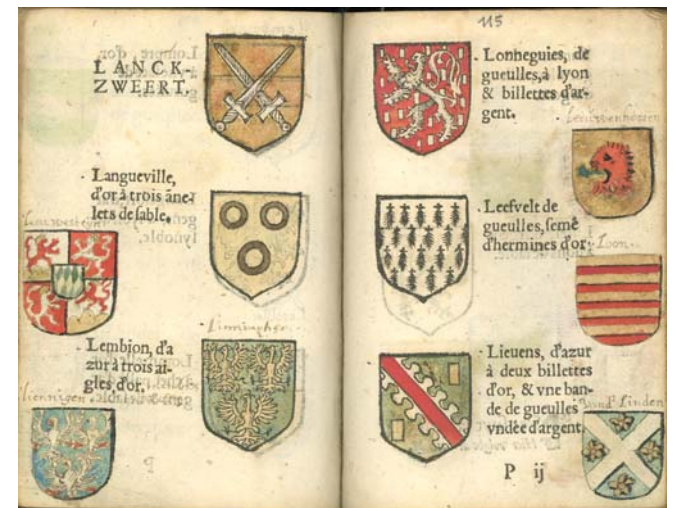 LANCK-
ZWEERT.
Langueville,
d'or à trois āne-
lets de sable.
Lembion, d'a
zur à trois ai-
gles d'or.
115
Lonheguies, de
gueulles, à lyon
& billettes d'ar-
gent.
Leefvelt de
gueulles, semé
d'hermines d'or.
Loon.
Lieuens, d'azur
à deux billettes
d'or, & vne ban-
de de gueulles
vndée d'argent.
Linden
P ij